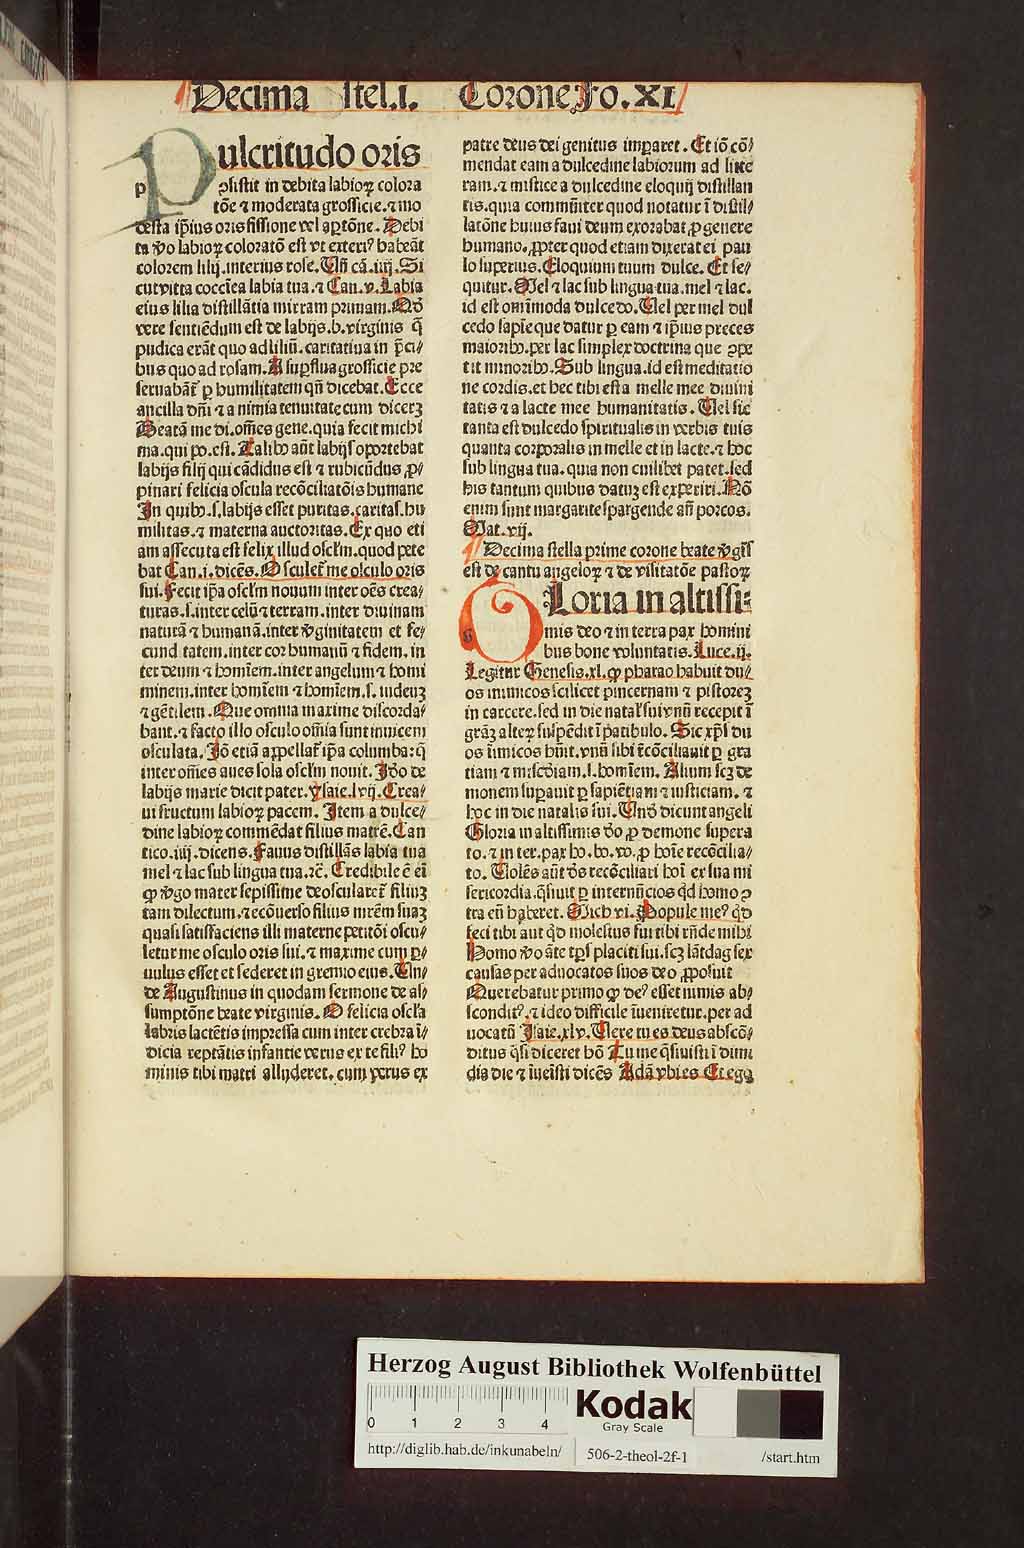 Decima stel.i. Corone Fo.XI
Pulcritudo oris
ꝯsistit in debita labioꝝ colora
tōe ⁊ moderata grossicie.⁊ mo
desta ip̄ius oris fissione vel aꝑtōne. Debi
ta v̓o labioꝝ coloratō est vt exteri⁹ habeāt
colorem lilij.interius rose. Vn̄ cā.iiij. Si
cut vitta coccīea labia tua.⁊ Can.v. Labia
eius lilia distillātia mirram primam. Nō
vere sentiēdum est de labijs.b.virginis q̄
pudica erāt quo ad liliū. caritatiua in p̄ci⸗
bus quo ad rosam. A suꝑflua grossicie pre
seruabāt̄ ꝑ humilitatem qn̄ dicebat. Ecce
ancilla dn̄i ⁊ a nimia tenuitate cum dicerꝫ
Beatā me di.om̄es gene.quia fecit michi
ma.qui po.est. Talibꝰ aūt labijs oportebat
labijs filij qui cādidus est ⁊ rubicūdus ꝓ⸗
pinari felicia oscula recōciliatōis humane
In quibꝰ.s.labijs esset puritas.caritas.hu
militas.⁊ materna auctoritas. Ex quo eti
am assecuta est felix illud oscl̄m.quod pete
bat Can.i.dicēs. Osculet̄ me osculo oris
sui. Fecit ip̄a oscl̄m nouum inter oēs crea⸗
turas.s.inter celū ⁊ terram.inter diuinam
naturā ⁊ humanā.inter v̓ginitatem et fe⸗
cund tatem.inter cor humanū ⁊ fidem.in
ter deum ⁊ homīem.inter angelum ⁊ homi
minem.inter homīem ⁊ homīem.s. iudeuꝫ
⁊ gētilem. Que omnia maxime discorda⸗
bant.⁊ facto illo osculo om̄ia sunt inuicem
osculata. Iō etiā appellat̄ ip̄a columba:q̄
inter om̄es aues sola oscl̄m nouit. Id̓o de
labijs marie dicit pater. ysaie.lvij. Crea⸗
ui fructum labioꝝ pacem. Item a dulce⸗
dine labioꝝ commēdat filius matrē. Can
tico.iiij.dicens. Fauus distillās labia tua
mel ⁊ lac sub lingua tua.⁊c̄. Credibile ē eī
ꝙ v̓go mater sepissime deoscularet̄ filiuꝫ
tam dilectum.⁊ ecōuerso filius mr̄em suaꝫ
quasi satisfaciens illi materne petitōi oscu⸗
letur me osculo oris sui.⁊ maxime cum ꝑ⸗
uulus esset et sederet in gremio eius. Vn⸗
de Augustinus in quodam sermone de as⸗
sumptōne beate virginis. O felicia oscl̄a
labris lactētis impressa cum inter crebra ī⸗
dicia reptātis infantie verus ex te fili⁹ ho
minis tibi matri alluderet.cum verus ex
patre deus dei genitus imꝑaret. Et iō cō⸗
mendat eam a dulcedine labiorum ad litte
ram.⁊ mistice a dulcedine eloquij distillan
tis.quia commūiter quod notatur ī distil⸗
latōne huius faui deum exorabat ꝓ genere
humano.ꝓpter quod etiam dixerat ei pau
lo superius. Eloquium tuum dulce. Et se⸗
quitur. Mel ⁊ lac sub lingua tua.mel ⁊ lac.
id est om̄imoda dulcedo. Vel per mel dul
cedo sapīe que datur ꝑ eam ⁊ ip̄ius preces
maioribꝰ.per lac simplex doctrina que ꝯpe
tit minoribꝰ. Sub lingua.id est meditatio
ne cordis.et hec tibi est a melle mee diuini
tatis ⁊ a lacte mee humanitatis. Vel sic
tanta est dulcedo spiritualis in verbis tuis
quanta corporalis in melle et in lacte.⁊ hoc
sub lingua tua.quia non cuilibet patet.sed
his tantum quibus datuꝫ est experiri. Nō
enim sunt margarite spargende an̄ porcos.
Mat.vij.
Decima stella prime corone beate v̓gīs
est de cantu angeloꝝ ⁊ de visitatōe pastoꝝ
Gloria in altissi⸗
mis deo ⁊ in terra pax homini
bus bone voluntatis. Luce.ij.
Legitur Genesis.xl. ꝙ pharao habuit du⸗
os inimicos scilicet pincernam ⁊ pistorez
in carcere.sed in die natal̄ sui vnū recepit ī
grāꝫ alteꝝ suspēdit ī patibulo. Sic xp̄s du
os īimicos hūit.vnū sibi reco̅ciliauit ꝑ gra
tiam ⁊ miscd̓iam.s.homīem. Alium scꝫ de
monem suꝑauit ꝑ sapiētiam ⁊ iusticiam. ⁊
hoc in die natalis sui. Vnd̓ dicunt angeli
Gloria in altissimis d̓o ꝓ demone supera
to.⁊ in ter.pax ho.bo.vo.ꝓ hoīe recōcilia⸗
to. Volēs aūt d̓s recōciliari hoī ex sua mi
sericordia.q̄siuit ꝑ internūcios qd̓ homo ꝯ
tra eū haberet. Mich vi. Popule me⁹ qd̓
feci tibi aut qd̓ molestus fui tibi rn̄de mihi
Homo v̓o āte tp̄s placiti sui.scꝫ lātdag sex
causas per aduocatos suos deo ꝓposuit
Querebatur primo ꝙ de⁹ esset nimis ab⸗
scondit⁹.⁊ ideo difficile īueniretur.per ad
uocatū Isaie.xlv. Vere tu es deus abscō⸗
ditus q̄si diceret hō Tu me q̄siuisti ī dimi
dia die ⁊ īueīsti dicēs Adā vbi es Et ego
Herzog August Bibliothek Wolfenbüttel
0 1 2 3 4
Kodak
Gray Scale
http://diglib.hab.de/inkunabeln/ 506-2-theol-2f-1 /start.htm